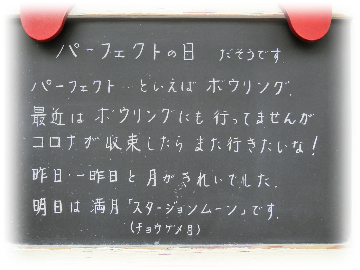 パーフェクトの日 だそうです
パーフェクト‥といえば ボウリング.
最近は ボウリングにも 行ってませんが
コロナが 収束したら また行きたいな!
昨日・一昨日と 月がきれいでした.
明日は 満月「スタージョンムーン」です.
(チョウザメ月)